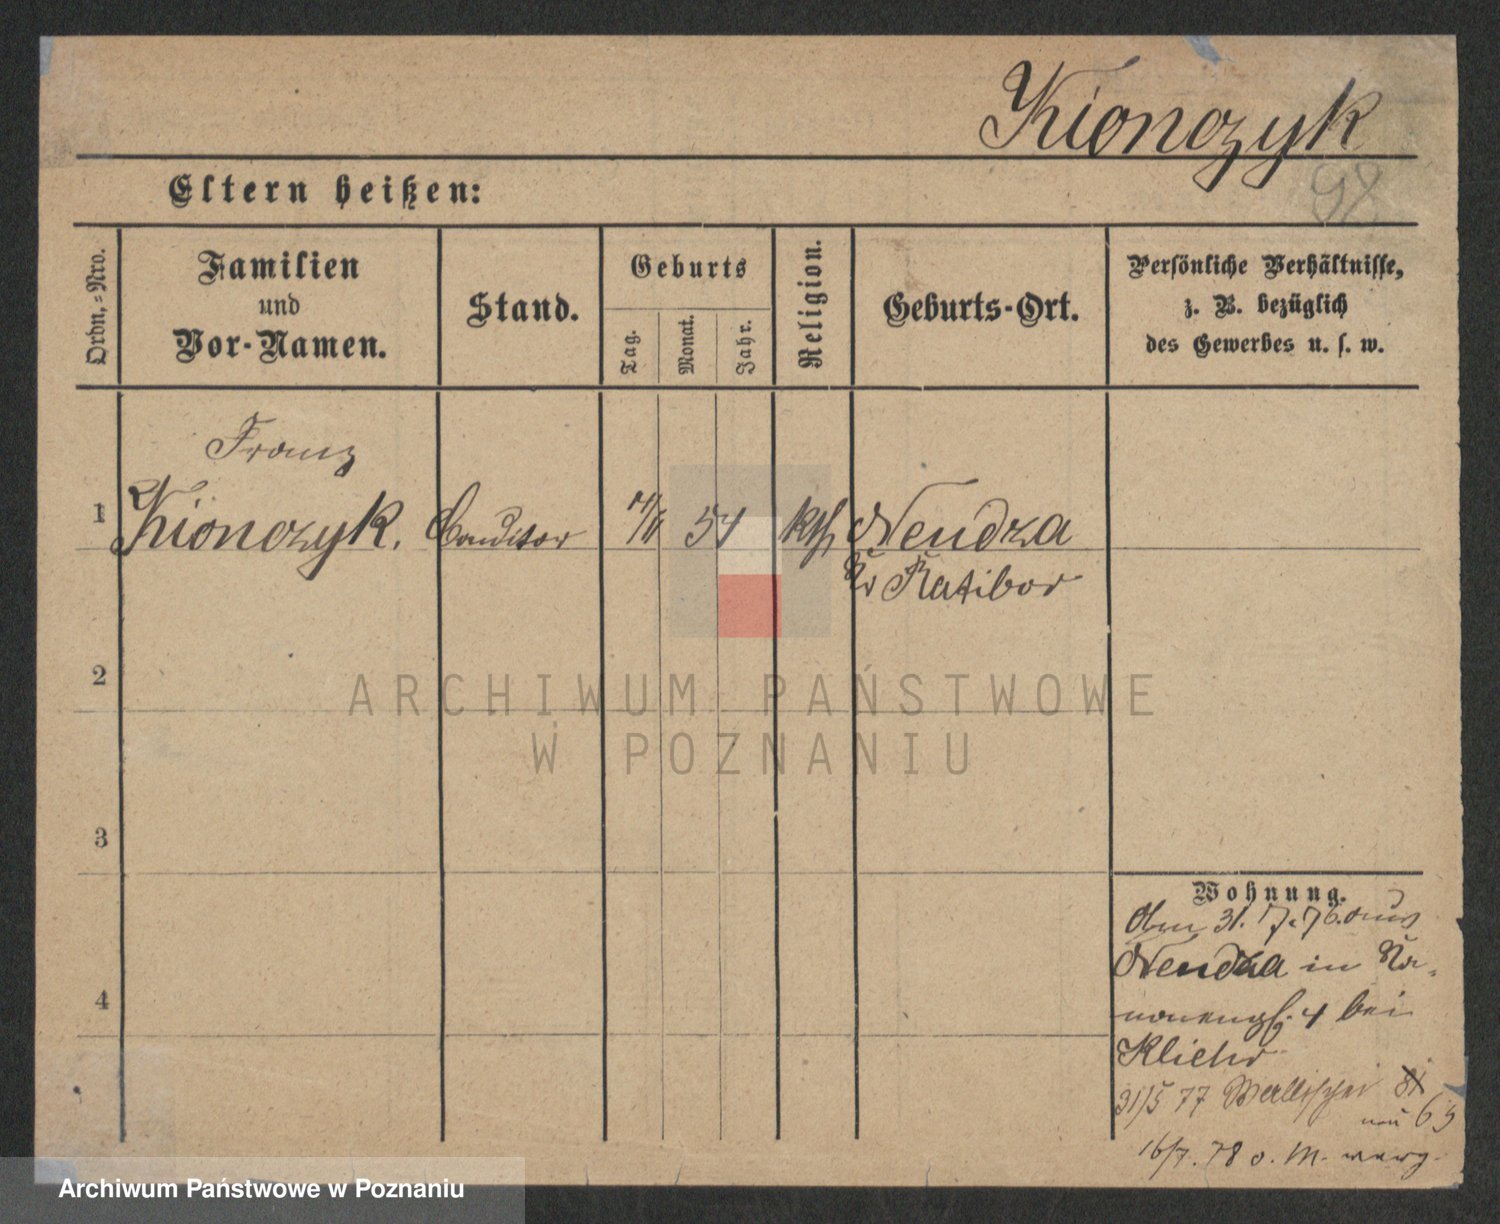 Kionczyk
98
Eltern heißen:
Ordn.=Nro.
Familien
und
Vor-Namen.
Stand.
Geburts
Tag.
Monat.
Jahr.
Religion.
Geburts-Ort.
Persönliche Verhältnisse,
z. B. bezüglich
des Gewerbes u. s. w.
Franz
1 Kionczyk. Conditor 54 kth Nendza
Kr Ratibor
2
3
4
Wohnung.
31. 7. 76. aus
Nendza in Ka-
nonengß. 4 bei
Kliehr
31/5 77 Wallischei
neu 69
16/7. 78 o. M. verz.
ARCHIWUM PAŃSTWOWE
W POZNANIU
Archiwum Państwowe w Poznaniu